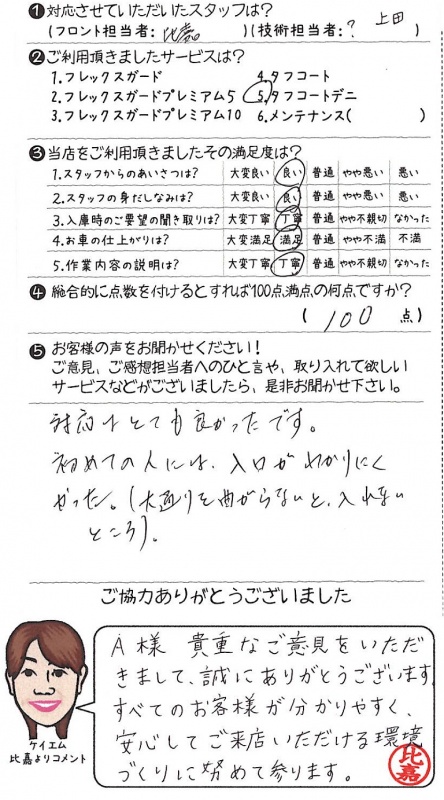 ❶対応させていただいたスタッフは?
(フロント担当者: 比嘉 )(技術担当者:? 上田 )
❷ご利用頂きましたサービスは?
1.フレックスガード 4.タフコート
2.フレックスガードプレミアム5 5.タフコートデニ
3.フレックスガードプレミアム10 6.メンテナンス( )
❸当店をご利用頂きましたその満足度は?
1.スタッフからのあいさつは? 大変良い 良い 普通 やや悪い 悪い
2.スタッフの身だしなみは? 大変良い 良い 普通 やや悪い 悪い
3.入庫時のご要望の聞き取りは? 大変丁寧 丁寧 普通 やや不親切 なかった
4.お車の仕上がりは? 大変満足 満足 普通 やや不満 不満
5.作業内容の説明は? 大変丁寧 丁寧 普通 やや不親切 なかった
❹総合的に点数を付けるとすれば100点満点の何点ですか?
( 100 点)
❺お客様の声をお聞かせください!
ご意見、ご感想担当者へのひと言や、取り入れて欲しい
サービスなどがございましたら、是非お聞かせ下さい。
対応はとても良かったです。
初めての人には、入口がわかりにく
かった。(大通りを曲がらないと、入れない
ところ)。
ご協力ありがとうございました
A様 貴重なご意見をいただ
きまして、誠にありがとうございます。
すべてのお客様が分かりやすく、
安心してご来店いただける環境
づくりに努めて参ります。
比嘉
ケイエム
比嘉よりコメント